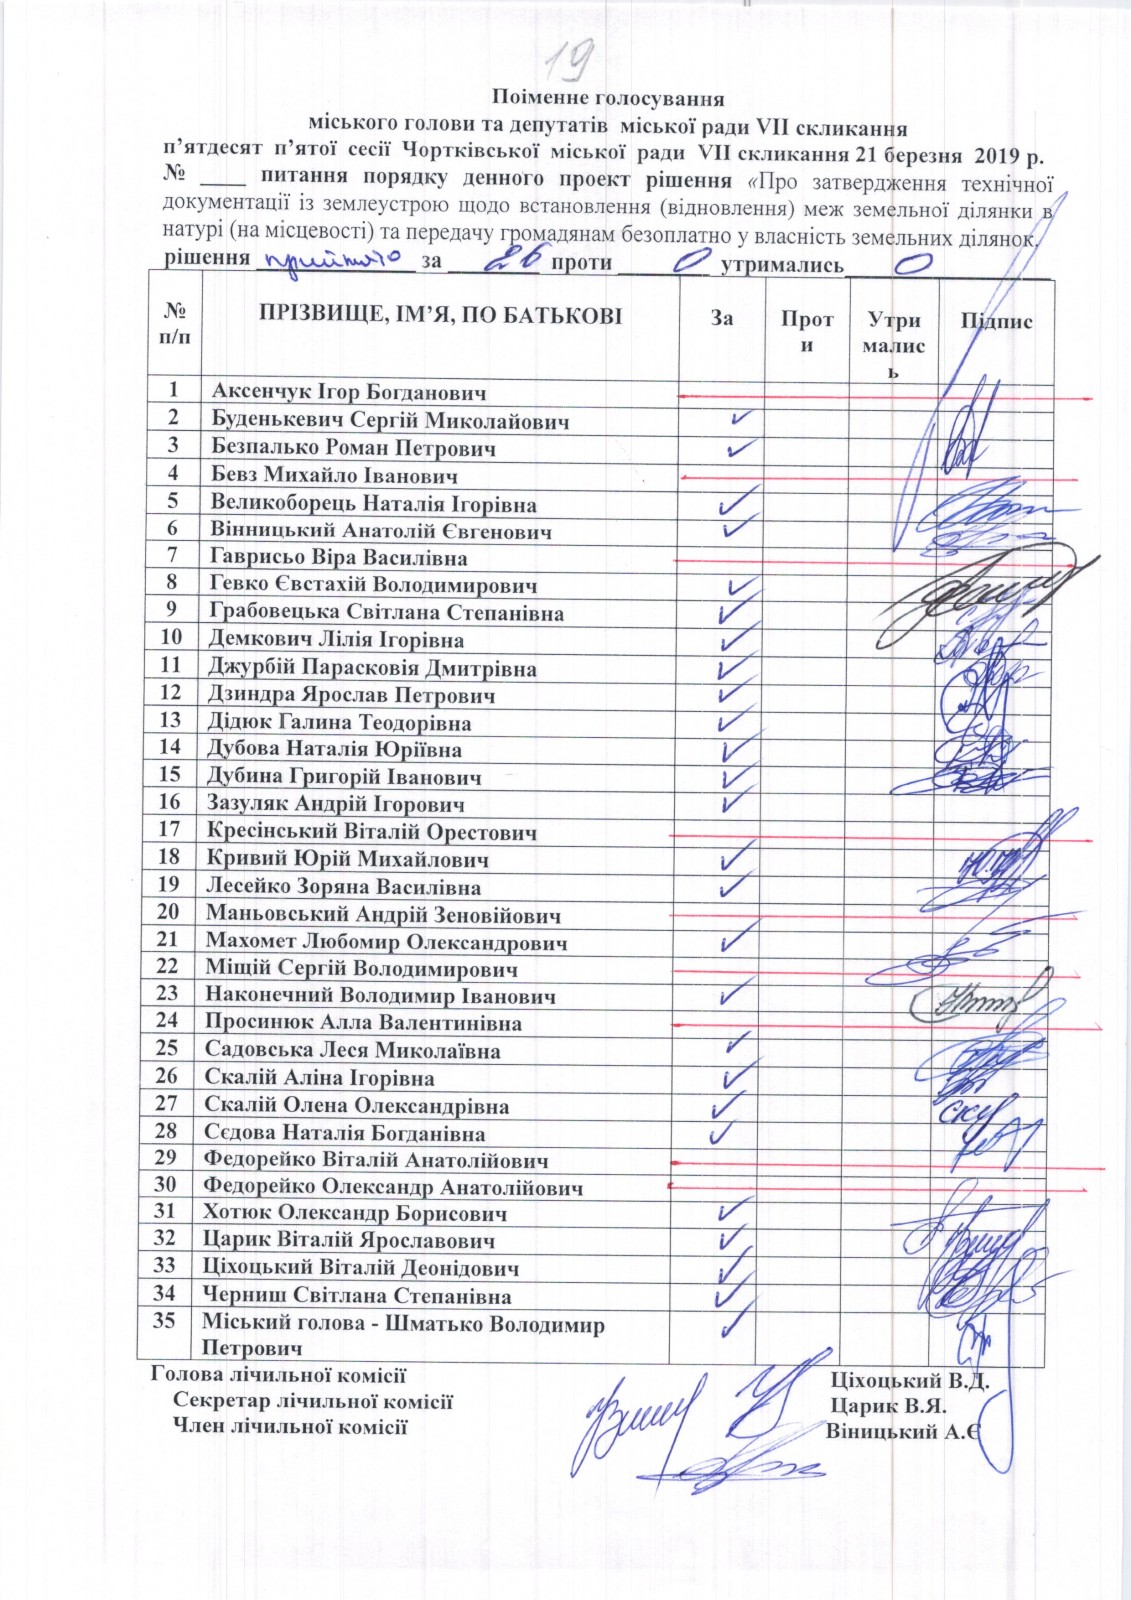 19
Поіменне голосування
міського голови та депутатів міської ради VII скликання
п’ятдесят п’ятої сесії Чортківської міської ради VII скликання 21 березня 2019 р.
№ ____ питання порядку денного проект рішення «Про затвердження технічної
документації із землеустрою щодо встановлення (відновлення) меж земельної ділянки в
натурі (на місцевості) та передачу громадянам безоплатно у власність земельних ділянок.
рішення прийнято за 26 проти 0 утримались 0
№ п/п ПРІЗВИЩЕ, ІМ’Я, ПО БАТЬКОВІ За Проти Утримались Підпис
1 Аксенчук Ігор Богданович
2 Буденькевич Сергій Миколайович ✓
3 Безпалько Роман Петрович ✓
4 Бевз Михайло Іванович
5 Великоборець Наталія Ігорівна ✓
6 Вінницький Анатолій Євгенович ✓
7 Гаврисьо Віра Василівна
8 Гевко Євстахій Володимирович ✓
9 Грабовецька Світлана Степанівна ✓
10 Демкович Лілія Ігорівна ✓
11 Джурбій Парасковія Дмитрівна ✓
12 Дзиндра Ярослав Петрович ✓
13 Дідюк Галина Теодорівна ✓
14 Дубова Наталія Юріївна ✓
15 Дубина Григорій Іванович ✓
16 Зазуляк Андрій Ігорович ✓
17 Кресінський Віталій Орестович
18 Кривий Юрій Михайлович ✓
19 Лесейко Зоряна Василівна ✓
20 Маньовський Андрій Зеновійович
21 Махомет Любомир Олександрович ✓
22 Міщій Сергій Володимирович
23 Наконечний Володимир Іванович ✓
24 Просинюк Алла Валентинівна
25 Садовська Леся Миколаївна ✓
26 Скалій Аліна Ігорівна ✓
27 Скалій Олена Олександрівна ✓
28 Сєдова Наталія Богданівна ✓
29 Федорейко Віталій Анатолійович
30 Федорейко Олександр Анатолійович
31 Хотюк Олександр Борисович ✓
32 Царик Віталій Ярославович ✓
33 Ціхоцький Віталій Деонідович ✓
34 Черниш Світлана Степанівна ✓
35 Міський голова - Шматько Володимир ✓
Петрович
Голова лічильної комісії Ціхоцький В.Д.
Секретар лічильної комісії Царик В.Я.
Член лічильної комісії Віницький А.Є